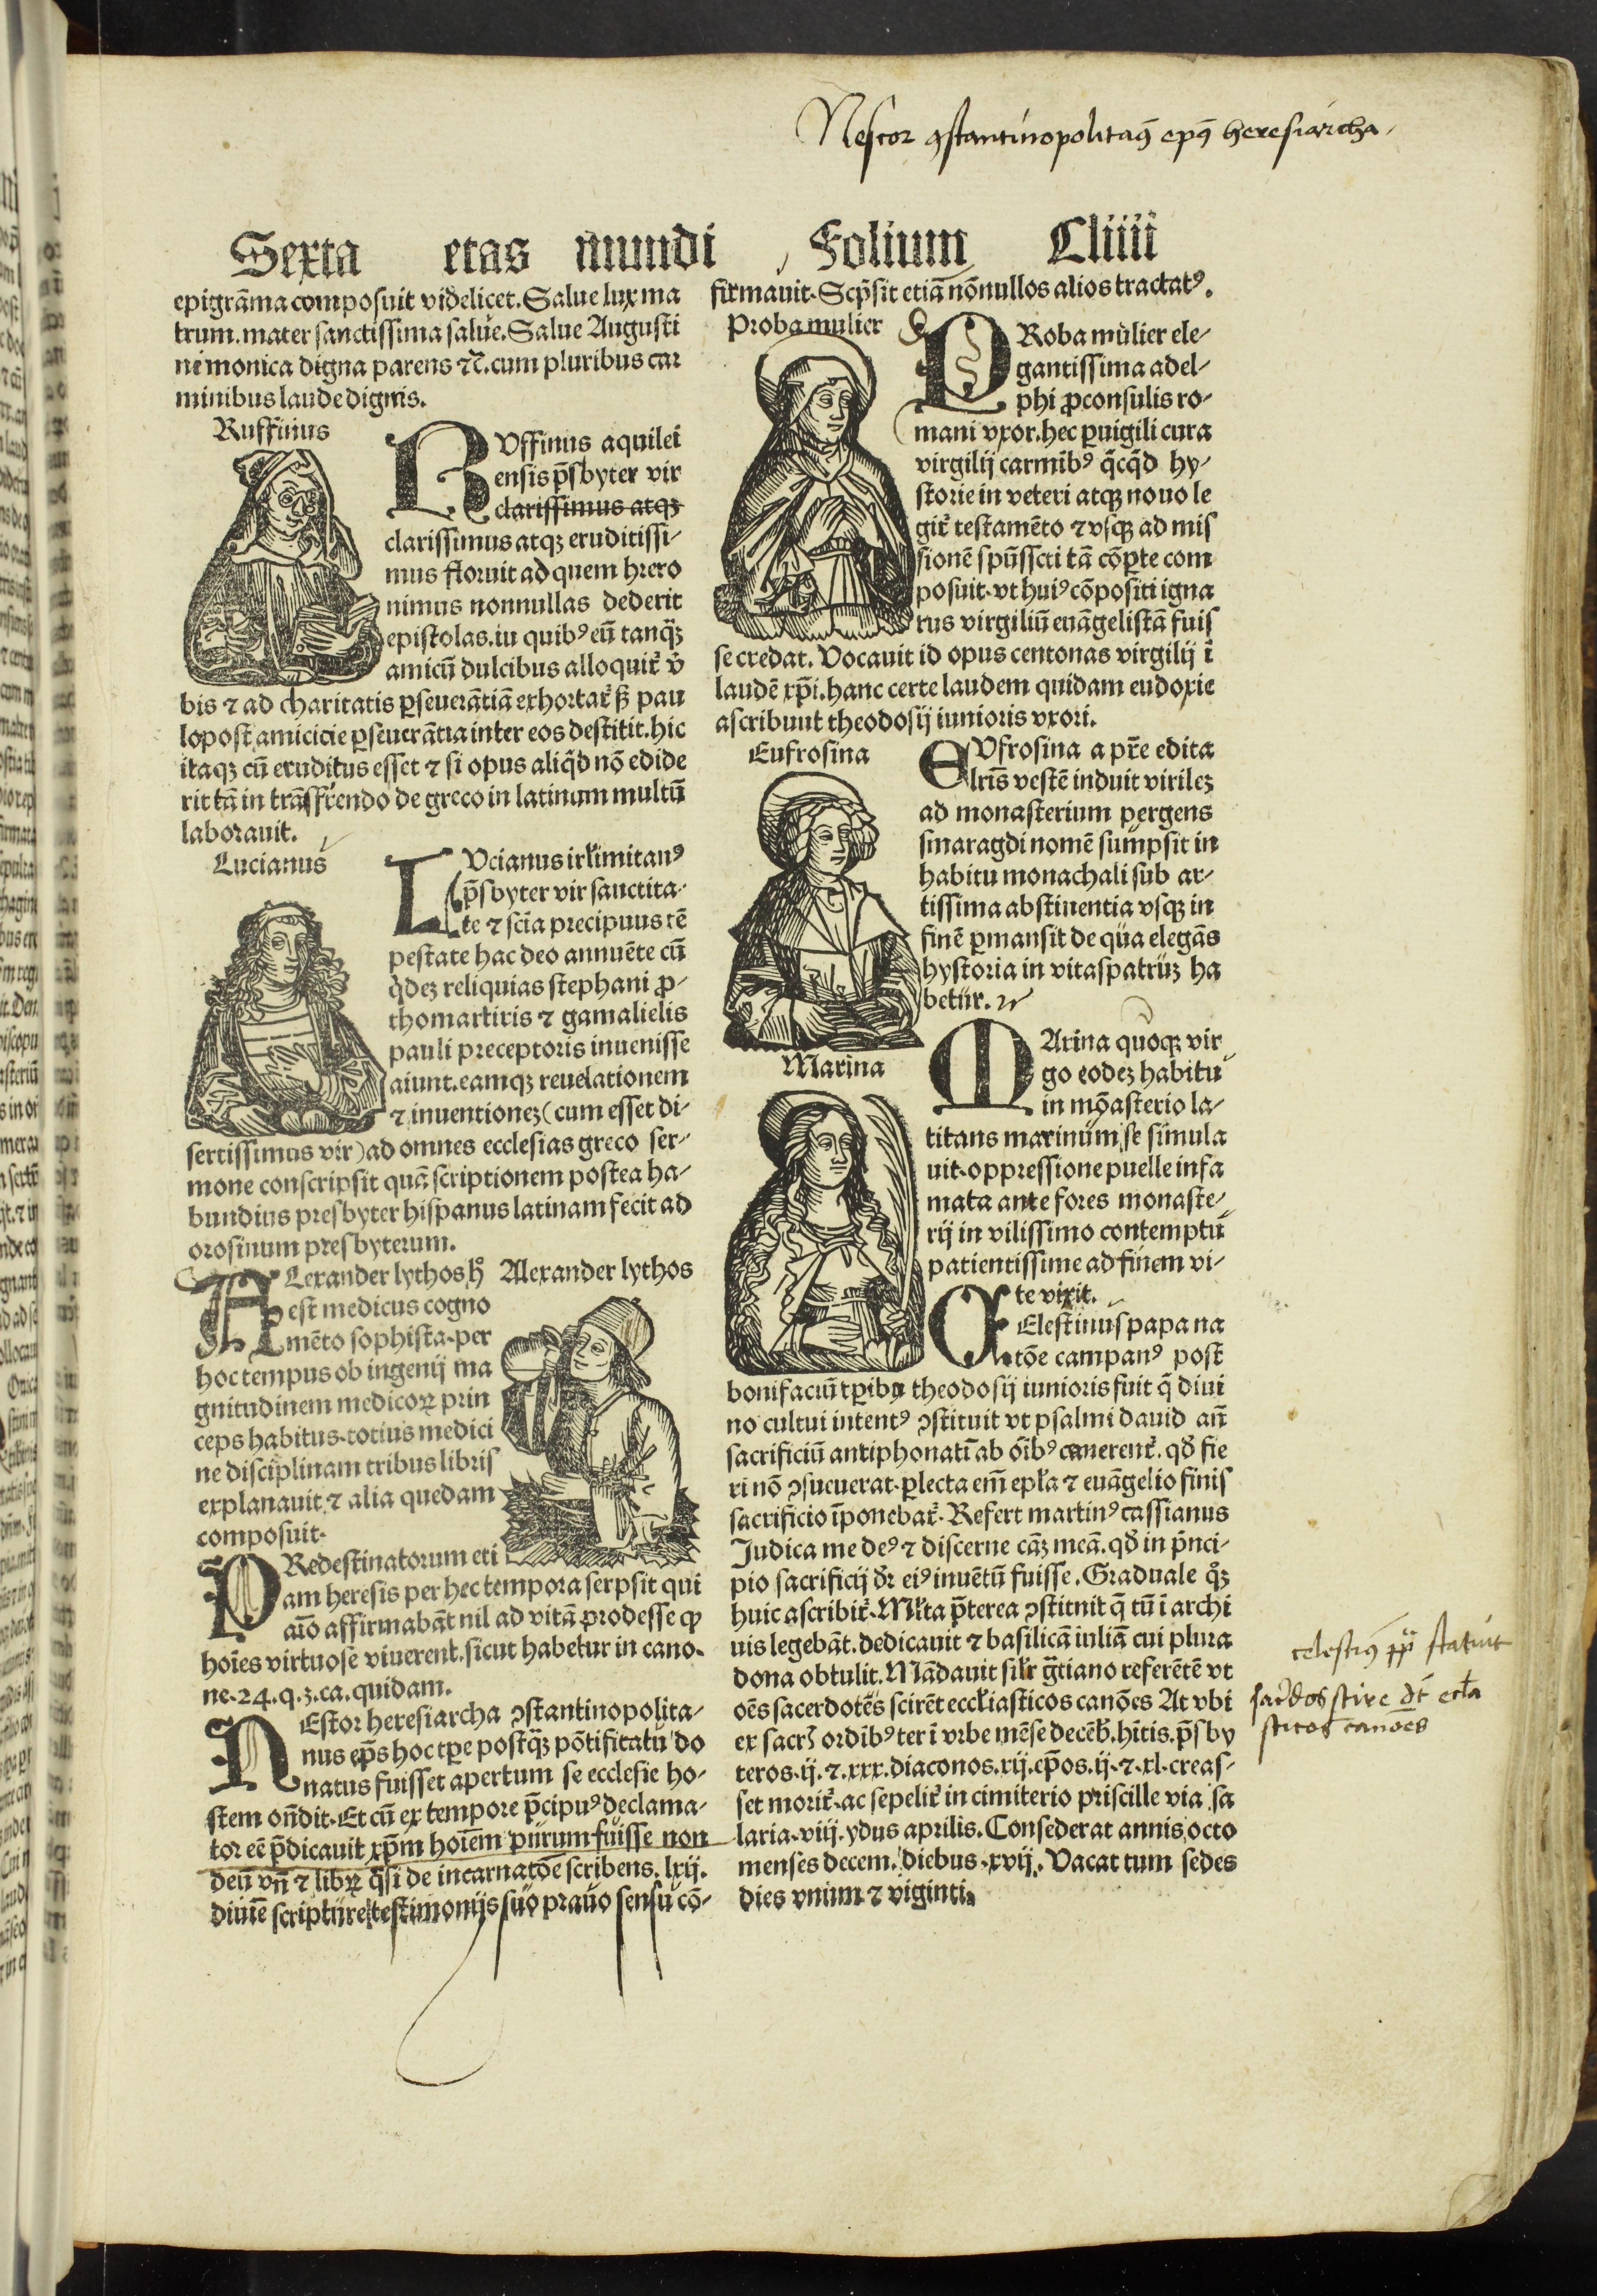 Nestor ꝯstantinopolitanꝰ epꝰ heresiarcha
Sexta etas mundi Folium Cliiii
epigrãma composuit videlicet. Salue lux ma
trum. mater sanctissima salue. Salue Augusti
ni monica digna parens ⁊c̃. cum pluribus car
minibus laude dignis.
Ruffinus
RVffinus aquilei
ensis p̃sbyter vir
clarissimus atqꝫ
clarissimus atqꝫ eruditissi-
mus floruit ad quem hiero
nimus nonnullas dederit
epistolas. iu quibꝰ eũ tanq̃ꝫ
amicũ dulcibus alloquit᷑ v̾
bis ⁊ ad charitatis ꝑseuerãtiã exhortat᷑ sꝫ pau
lopost amicicie ꝑseuerãtia inter eos destitit. hic
itaqꝫ cũ eruditus esset ⁊ si opus aliq̃d nõ edide
rit tã in trãsfr̃endo de greco in latinum multũ
laborauit.
Lucianus
LVcianus irl̃imitanꝰ
p̃sbyter vir sanctita-
te ⁊ scĩa precipuus tẽ
pestate hac deo annuẽte cũ
q̃dez reliquias stephani ꝓ-
thomartiris ⁊ gamalielis
pauli preceptoris inuenisse
aiunt. eamqꝫ reuelationem
⁊ inuentioneꝫ (cum esset di-
sertissimus vir) ad omnes ecclesias greco ser-
mone conscripsit quã scriptionem postea ha-
bundius presbyter hispanus latinam fecit ad
orosinum presbyterum.
Alexander lythos
ALexander lythos hꝰ
est medicus cogno
mẽto sophista. per
hoc tempus ob ingenij ma
gnitudinem medicoꝝ prin
ceps habitus. totius medici
ne disciplinam tribus libris
explanauit ⁊ alia quedam
composuit.
PRedestinatorum eti
am heresis per hec tempora serpsit qui
aĩo affirmabãt nil ad vitã prodesse ꝙ
hoĩes virtuose viuerent. sicut habetur in cano-
ne. 24. q. 3. ca. quidam.
NEstor heresiarcha ꝯstantinopolita-
nus ep̃s hoc tꝑe postq̃ꝫ põtificatu do
natus fuisset apertum se ecclesie ho-
stem oñdit. Et cũ ex tempore p̃cipuꝰ declama-
tor eẽ p̃dicauit xp̃m hoĩem purum fuisse non
deũ vñ ⁊ libꝝ q̃si de incarnatõe scribens. lxij.
diuiẽ scripture testimonijs suo prauo sensu cõ-
firmauit. Scp̃sit etiã nõnullos alios tractatꝰ.
Proba mulier
PRoba mulier ele-
gantissima adel-
phi ꝓconsulis ro-
mani vxor. hec ꝑuigili cura
virgilij carmĩbꝰ q̃cq̃d hy-
storie in veteri atqꝫ nouo le
git᷑ testamẽto ⁊ vsqꝫ ad mis
sionẽ spũssctĩ tã cõpte com
posuit. vt huiꝰ cõpositi igna
rus virgiliũ euãgelistã fuis
se credat. Vocauit id opus centonas virgilij ĩ
laudẽ xp̃i. hanc certe laudem quidam eudoxie
ascribunt theodosij iunioris vxori.
Eufrosina
EVfrosina a pr̃e edita
lr̃is vestẽ induit virileꝫ
ad monasterium pergens
smaragdi nomẽ sumpsit in
habitu monachali sub ar-
tissima abstinentia vsqꝫ in
finẽ ꝑmansit de qua elegãs
hystoria in vitaspatruꝫ ha
betur.
Marina
MArina quoqꝫ vir
go eodeꝫ habitu
in mõasterio la-
titans marinum se simula
uit. oppressione puelle infa
mata ante fores monaste-
rij in vilissimo contemptu
patientissime ad finem vi-
te vixit.
CElestinus papa na
tõe campanꝰ post
bonifaciũ tꝑibꝰ theodosij iunioris fuit q̃ diui
no cultui intentꝰ ꝯstituit vt psalmi dauid añ
sacrificiũ antiphonatĩ ab oĩbꝰ canerent᷑. qð fie
ri nõ ꝯsueuerat. ꝑlecta em̃ epl̃a ⁊ euãgelio finis
sacrificio ĩponebat᷑. Refert martinꝰ cassianus
Judica me deꝰ ⁊ discerne cãꝫ meã. qð in p̃nci-
pio sacrificij dr̃ eiꝰ inuẽtũ fuisse. Graduale qꝫ
huic ascribit᷑. Ml̃ta p̃terea ꝯstituit q̃ tũ ĩ archi
uis legebãt. dedicauit ⁊ basilicã iuliã cui plura
dona obtulit. Mãdauit sil̃r g̃tiano referẽtẽ vt
oẽs sacerdotẽs scirẽt eccl̃iasticos canões At vbi
ex sacr̃ ordĩbꝰ ter ĩ vrbe mẽse decẽb̃. hitis. p̃sby
teros. ij. ⁊. xxx. diaconos. xij. ep̃os. ij. ⁊. xl. creas-
set morit᷑. ac sepelit᷑ in cimiterio priscille via sa
laria. viij. ydus aprilis. Consederat annis octo
menses decem. diebus. xvij. Vacat tum sedes
dies vnum ⁊ viginti.
celestinꝰ pp̃ statuit
sac̃dos scire dt̃ eccl̃ia
sticos canões